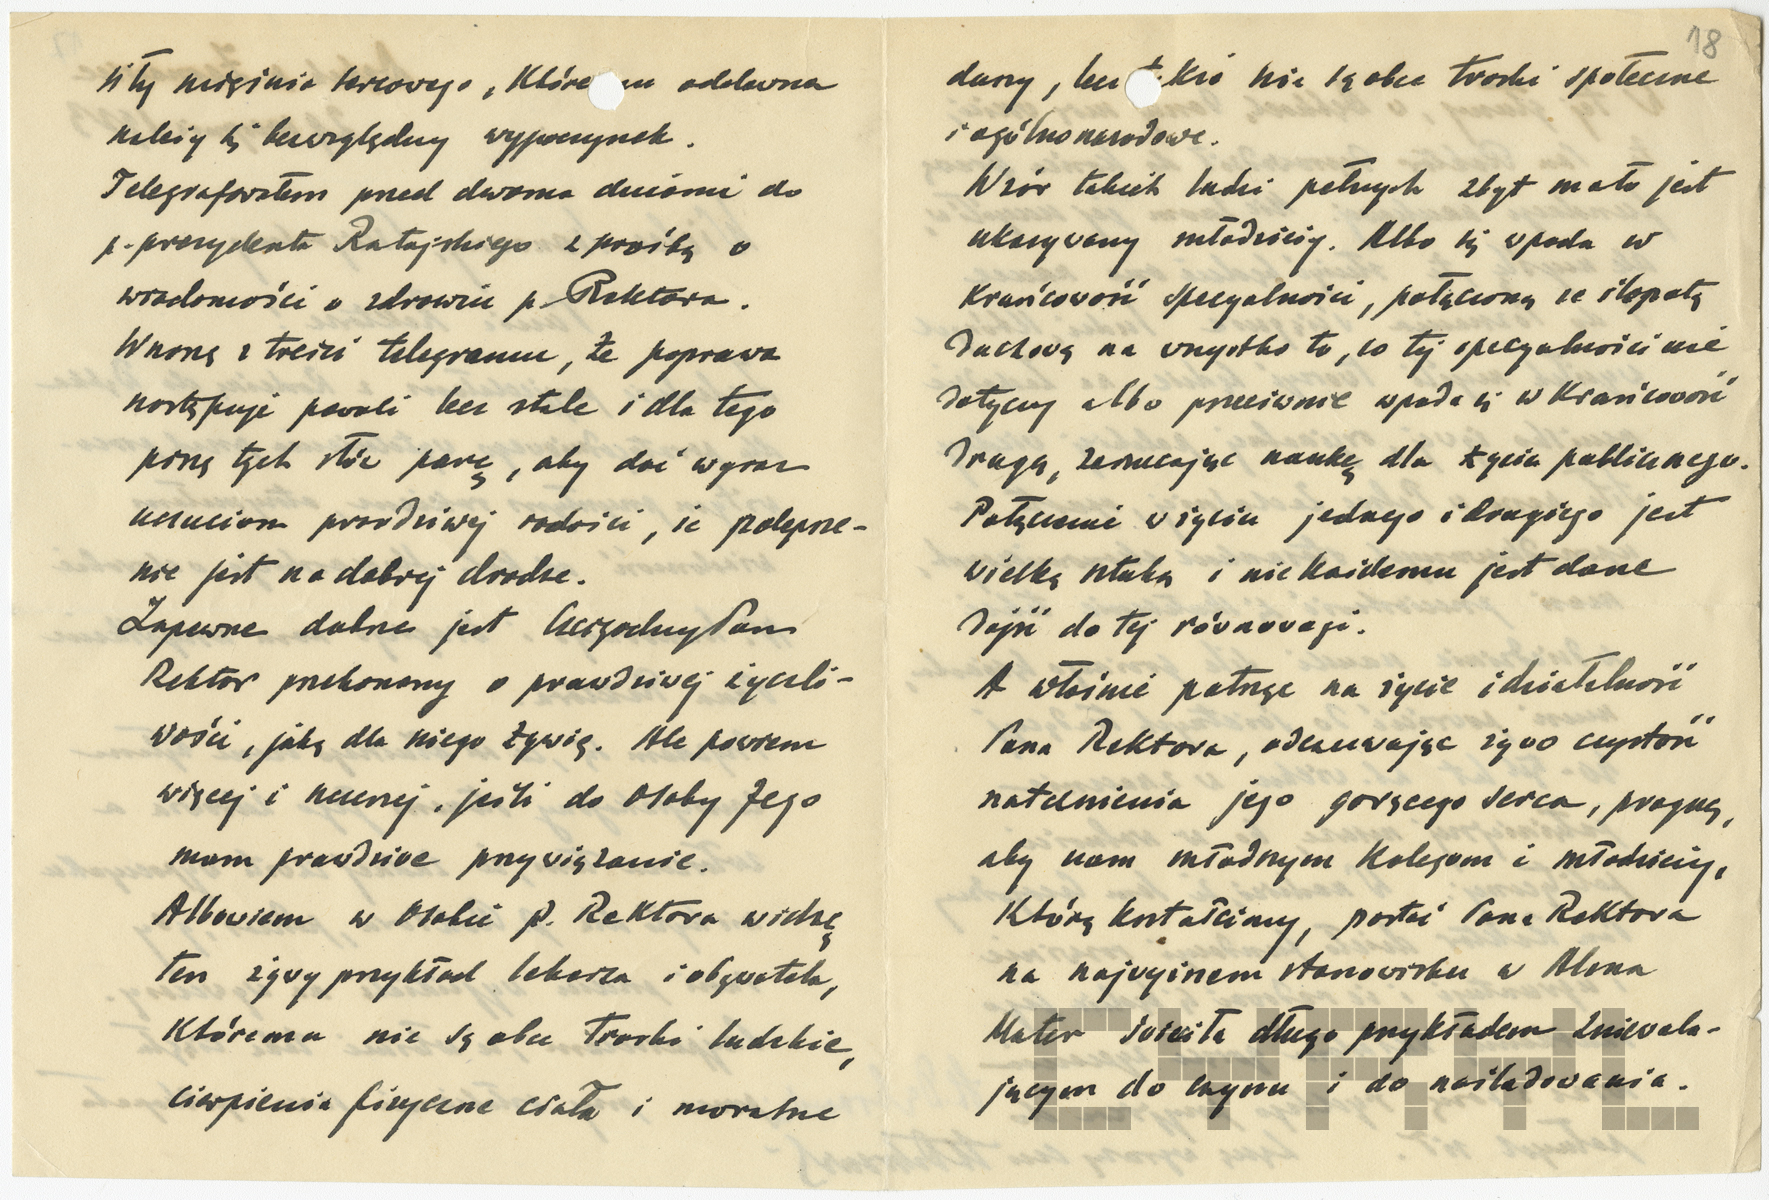 siły mięśnia sercowego, które mu oddawna
należy się bezwzględny wypoczynek.
Telegrafowałem przed dwoma dniami do
p. prezydenta Ratajskiego z prośbą o
wiadomości o zdrowiu p. Rektora.
Wnoszę z treści telegramu, że poprawa
następuje powoli lecz stale i dla tego
piszę tych słów parę, aby dać wyraz
uczuciom prawdziwej radości, że polepsze-
nie jest na dobrej drodze.
Zapewne dobrze jest Czcigodny Pan
Rektor przekonany o prawdziwej życzli-
wości, jaką dla niego żywię. Ale powiem
więcej i szczerzej, jeśli do osoby Jego
mam prawdziwe przywiązanie.
Albowiem w osobie p. Rektora widzę
ten żywy przykład lekarza i obywatela,
któremu nie są obce troski ludzkie,
cierpienia fizyczne ciała i moralne
18
duszy, lecz także nie są obce troski społeczne
i ogólnonarodowe.
Wzór takich ludzi pełnych zbyt mało jest
ukazywany młodzieży. Albo się wpada w
krańcowość specyalności, połączoną ze ślepotą
duchową na wszystko to, co tej specyalności nie
dotyczy albo przeciwnie wpada się w krańcowość
drugą, zarzucając naukę dla życia publicznego.
Połączenie w życiu jednego i drugiego jest
wielką sztuką i nie każdemu jest dane
dojść do tej równowagi.
A właśnie patrząc na życie i działalność
Pana Rektora, odczuwając żywo czystość
natchnienia jego gorącego serca, pragnę,
aby nam młodszym kolegom i młodzieży,
którą kształcimy, postać Pana Rektora
na najwyższem stanowisku w Alma
Mater świeciła długo przykładem zniewala-
jącym do czynu i do naśladowania.